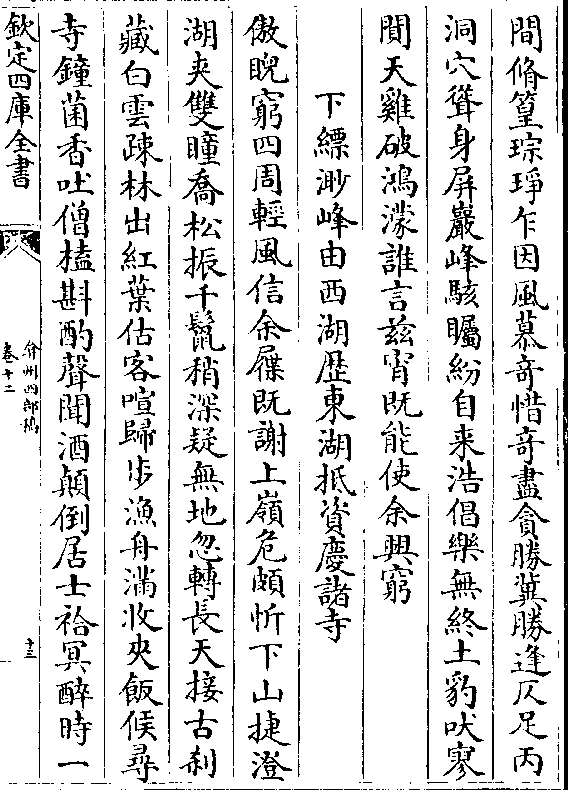 間脩篁琮琤乍因風慕奇惜奇盡貪勝冀勝逢仄足丙
洞穴聳身屏巖峰駭矚紛自来浩倡樂無終土豹吠寥
閴天雞破鴻濛誰言兹宵既能使余興窮
下縹渺峰由西湖歴東湖抵資慶諸寺
傲睨窮四周輕風信余屧既謝上嶺危頗忻下山捷澄
湖夾雙瞳喬松振千鬣稍深疑無地忽轉長天接古刹
藏白雲疎林出紅葉估客喧歸步漁舟滿收夾飯候尋
寺鐘菌香吐僧榼斟酌聲聞酒顛倒居士袷冥醉時一
欽定四庫全書
弇州四部稿
卷十二
十三